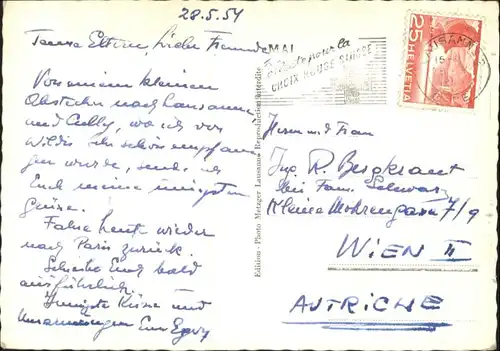 28.5.54
Teuere Eltern, liebe Freunde
Von einem kleinen
Abstecher nach Lausanne
und Cully, wo ich von
Willis sehr schön empfan
gen wurde, sende ich
Euch meine innigsten
Grüsse.
Fahre heute wieder
nach Paris zurück.
Schreibe Euch bald
ausführlich.
Innigste Küsse und
Umarmungen Euer
MAI
pour la
CROIX ROUGE SUISSE
25
HELVETIA
Edition - Photo Metzger Lausanne - Reproduction interdite
Herrn und Frau
Ing. R. Bergkraut
bei Fam. Schwarz
Kleine Mohrengasse 7/9
WIEN II
AUTRICHE